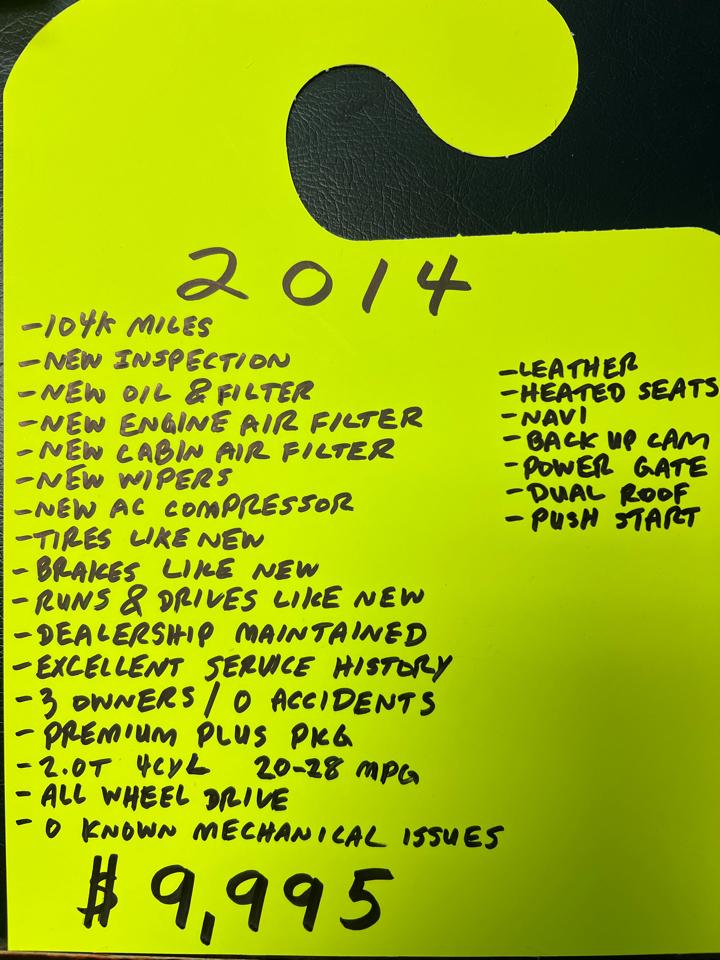 2014
-104K MILES
-NEW INSPECTION
-NEW OIL & FILTER
-NEW ENGINE AIR FILTER
-NEW CABIN AIR FILTER
-NEW WIPERS
-NEW AC COMPRESSOR
-TIRES LIKE NEW
-BRAKES LIKE NEW
-RUNS & DRIVES LIKE NEW
-DEALERSHIP MAINTAINED
-EXCELLENT SERVICE HISTORY
-3 OWNERS / 0 ACCIDENTS
-PREMIUM PLUS PKG
-2.0T 4CYL 20-28 MPG
-ALL WHEEL DRIVE
-0 KNOWN MECHANICAL ISSUES
-LEATHER
-HEATED SEATS
-NAVI
-BACK UP CAM
-POWER GATE
-DUAL ROOF
-PUSH START
$9,995